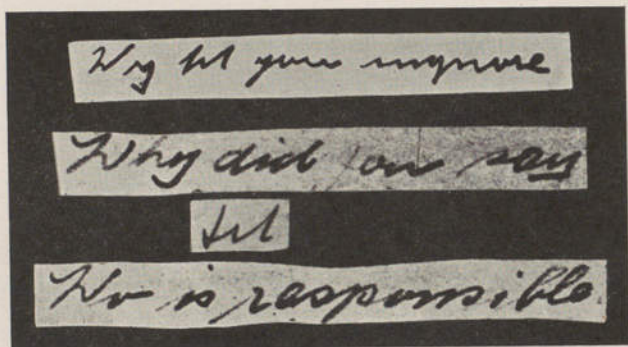 Wy tit you ingnore
Why did you say
tit
Wo is responsible